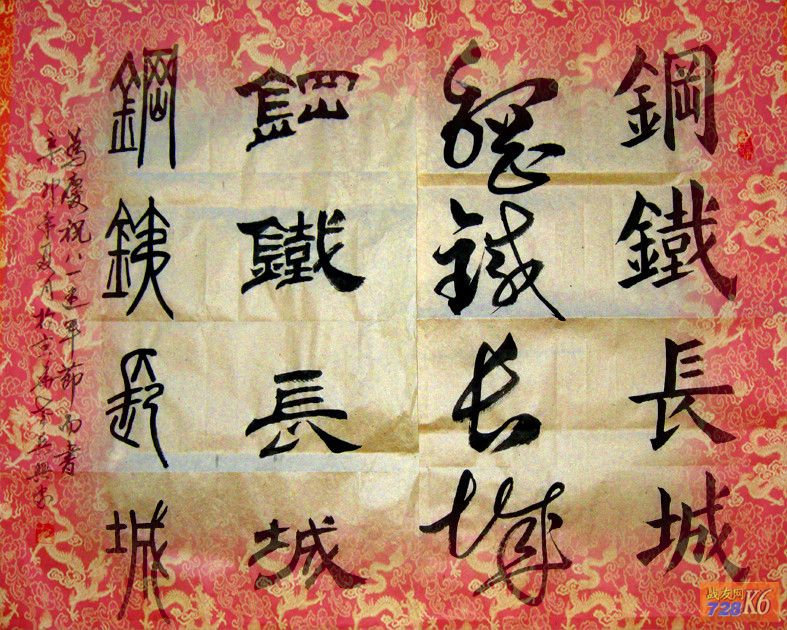 鋼鐵長城
鋼鐵長城
鋼鐵長城
鋼鐵長城
為慶祝八一建軍節而書
辛卯年夏月於
战友网
728K6